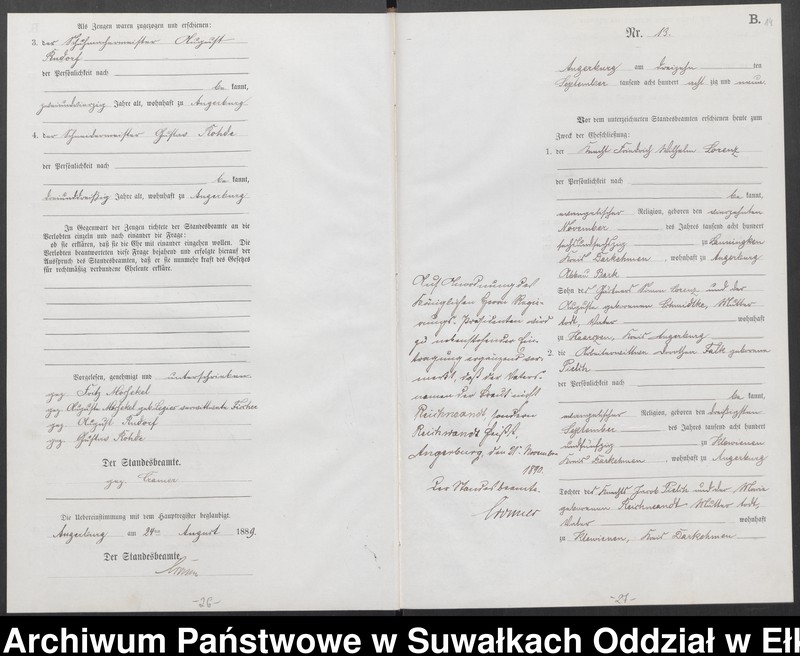 Als Zeugen waren zugezogen und erschienen:
3. der Schuhmachermeister August
Rudorf
der Persönlichkeit nach
be kannt,
zweiundvierzig Jahre alt, wohnhaft zu Angerburg
4. der Schneidermeister Gustav Rohde
der Persönlichkeit nach
be kannt,
dreiunddreißig Jahre alt, wohnhaft zu Angerburg
In Gegenwart der Zeugen richtete der Standesbeamte an die
Verlobten einzeln und nach einander die Frage:
ob sie erklären, daß sie die Ehe mit einander eingehen wollen. Die
Verlobten beantworteten diese Frage bejahend und erfolgte hierauf der
Ausspruch des Standesbeamten, daß er sie nunmehr kraft des Gesetzes
für rechtmäßig verbundene Eheleute erkläre.
Vorgelesen, genehmigt und unterschrieben
gez. Fritz
gez. Auguste geb. verwittwete Fischer
gez. August Rudorf
gez. Gustav Rohde
Der Standesbeamte.
gez. Cramer
Die Uebereinstimmung mit dem Hauptregister beglaubigt.
Angerburg am 24ten August 1889.
Der Standesbeamte.
Cramer
-26-
B.
Nr. 13.
Angerburg am dreizehn ten
September tausend acht hundert acht zig und neun
Vor dem unterzeichneten Standesbeamten erschienen heute zum
Zweck der Eheschließung:
1. der Knecht Friedrich Wilhelm Lorenz
der Persönlichkeit nach
be kannt,
evangelischer Religion, geboren den vierzehnten
November des Jahres tausend acht hundert
sechsundsechszig zu
Kreis Darkehmen, wohnhaft zu Angerburg
Abbau Bark
Sohn des Lorenz und der
Auguste geborenen Schmidtke, Mutter
todt, Vater wohnhaft
zu Haarszen, Kreis Angerburg
2. die Arbeiterwittwe Dorothea Falk geborene
Pielik
der Persönlichkeit nach
be kannt,
evangelischer Religion, geboren den dreißigsten
September des Jahres tausend acht hundert
undfünfzig zu Klewienen
Kreis Darkehmen, wohnhaft zu Angerburg
Tochter des Knechts Jacob Pielik und der Marie
geborenen Reichwandt Mutter todt,
Vater wohnhaft
zu Klewienen, Kreis Darkehmen
Auf Anordnung des
Königlichen Herrn Regie-
rungs-Präsidenten wird
zu nebenstehender Ein-
tragung ergänzend ver-
merkt, daß der Vaters-
namen der Braut nicht
Reichwandt, sondern
Reichwandt heißt.
Angerburg, den 21. November
1890.
Der Standesbeamte.
Cramer
-27-
Archiwum Państwowe w Suwałkach Oddział w Ełk